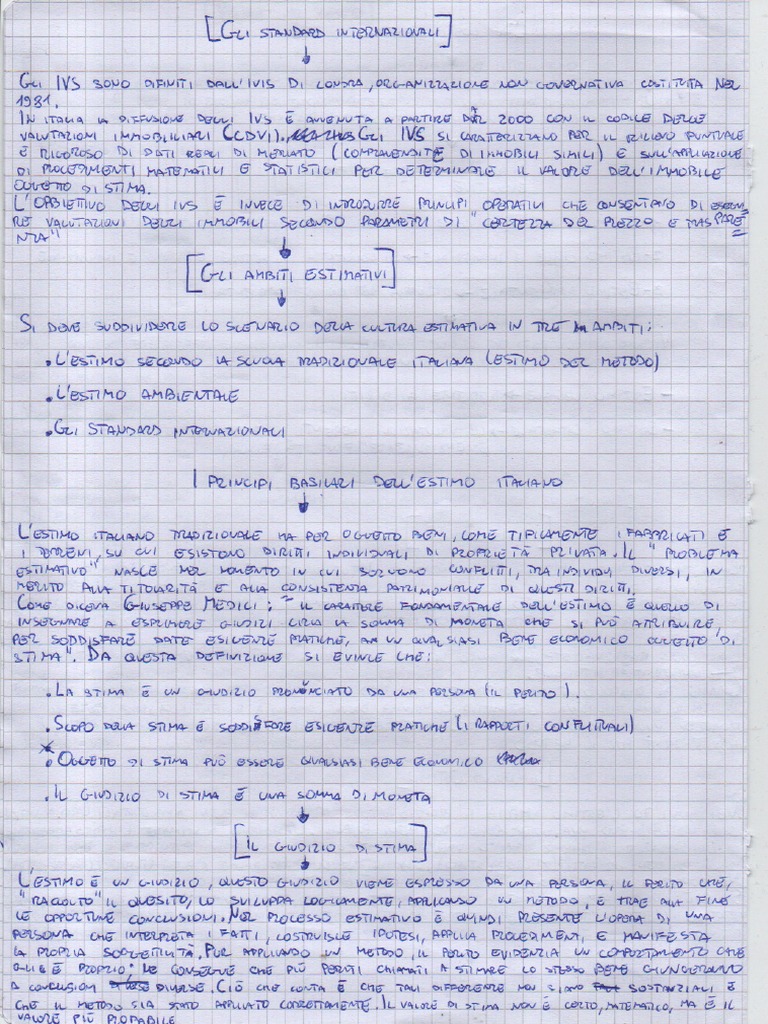 [GLI STANDARD INTERNAZIONALI]
GLI IVS SONO DIFINITI DALL'IVIS DI LONDRA, ORGANIZZAZIONE NON GOVERNATIVA COSTITUITA NEL
1981.
IN ITALIA LA DIFFUSIONE DEGLI IVS È AVVENUTA A PARTIRE DAL 2000 CON IL CODICE DELLE
VALUTAZIONI IMMOBILIARI (CDVI). GLI IVS SI CARATTERIZZANO PER IL RILIEVO PUNTUALE
E RIGOROSO DI DATI REALI DI MERCATO (COMPRAVENDITE DI IMMOBILI SIMILI) E SULL'APPLICAZIONE
DI PROCEDIMENTI MATEMATICI E STATISTICI PER DETERMINARE IL VALORE DELL'IMMOBILE
OGGETTO DI STIMA.
L'OBBIETTIVO DEGLI IVS È INVECE DI INTRODURRE PRINCIPI OPERATIVI CHE CONSENTANO DI ESEGUI-
RE VALUTAZIONI DEGLI IMMOBILI SECONDO PARAMETRI DI "CERTEZZA DEL PREZZO E TRASPARE
NZA"
[GLI AMBITI ESTIMATIVI]
SI DEVE SUDDIVIDERE LO SCENARIO DELLA CULTURA ESTIMATIVA IN TRE AMBITI:
• L'ESTIMO SECONDO LA SCUOLA TRADIZIONALE ITALIANA (ESTIMO DEL METODO)
• L'ESTIMO AMBIENTALE
• GLI STANDARD INTERNAZIONALI
I PRINCIPI BASILARI DELL'ESTIMO ITALIANO
L'ESTIMO ITALIANO TRADIZIONALE HA PER OGGETTO BENI, COME TIPICAMENTE I FABBRICATI E
I TERRENI, SU CUI ESISTONO DIRITTI INDIVIDUALI DI PROPRIETÀ PRIVATA. IL "PROBLEMA
ESTIMATIVO" NASCE NEL MOMENTO IN CUI SORGONO CONFLITTI, TRA INDIVIDUI DIVERSI, IN
MERITO ALLA TITOLARITÀ E ALLA CONSISTENZA PATRIMONIALE DI QUESTI DIRITTI.
COME DICEVA GIUSEPPE MEDICI: "IL CARATERE FONDAMENTALE DELL'ESTIMO È QUELLO DI
INSEGNARE A ESPRIMERE GIUDIZI CIRCA LA SOMMA DI MONETA CHE SI PUÒ ATTRIBUIRE,
PER SODDISFARE DATE ESIGENZE PRATICHE, AD UN QUALSIASI BENE ECONOMICO OGGETTO DI
STIMA". DA QUESTA DEFINIZIONE SI EVINCE CHE:
• LA STIMA È UN GIUDIZIO PRONUNCIATO DA UNA PERSONA (IL PERITO).
• SCOPO DELLA STIMA È SODDISFARE ESIGENZE PRATICHE (I RAPPORTI CONFLITTUALI)
• OGGETTO DI STIMA PUÒ ESSERE QUALSIASI BENE ECONOMICO
• IL GIUDIZIO DI STIMA È UNA SOMMA DI MONETA
[IL GIUDIZIO DI STIMA]
L'ESTIMO È UN GIUDIZIO, QUESTO GIUDIZIO VIENE ESPRESSO DA UNA PERSONA, IL PERITO CHE,
"RACCOLTO" IL QUESITO, LO SVILUPPA LOGICAMENTE, APPLICANDO UN METODO, E TRAE ALLA FINE
LE OPPORTUNE CONCLUSIONI. NEL PROCESSO ESTIMATIVO È QUINDI PRESENTE L'OPERA DI UNA
PERSONA CHE INTERPRETA I FATTI, COSTRUISCE IPOTESI, APPLICA PROCEDIMENTI, E MANIFESTA
LA PROPRIA SOGGETTIVITÀ. PUR APPLICANDO UN METODO, IL PERITO EVIDENZIA UN COMPORTAMENTO CHE
GLI È PROPRIO: NE CONSEGUE CHE PIÙ PERITI CHIAMATI A STIMARE LO STESSO BENE GIUNGERANNO
A CONCLUSIONI DIVERSE. CIÒ CHE CONTA È CHE TALI DIFFERENZE NON SIANO SOSTANZIALI E
CHE IL METODO SIA STATO APPLICATO CORRETTAMENTE. IL VALORE DI STIMA NON È CERTO, MATEMATICO, MA È IL
VALORE PIÙ PROBABILE